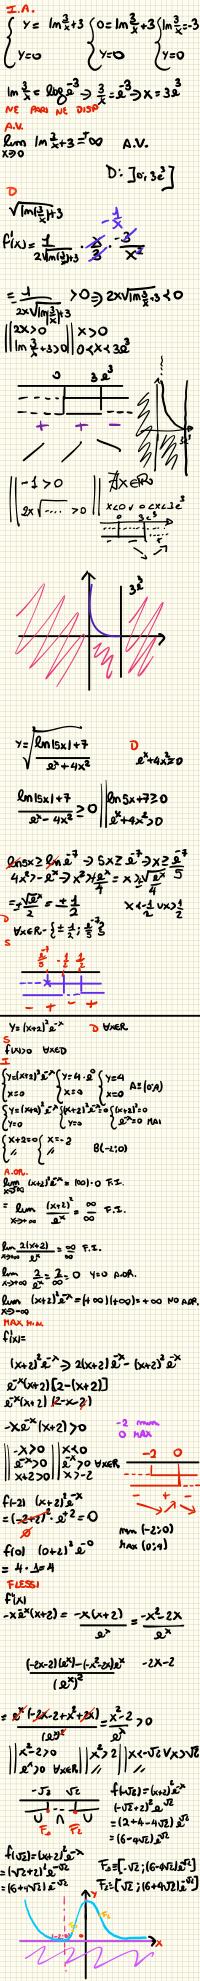 I.A.
{ y = ln 3/x + 3 { 0 = ln 3/x + 3 { ln 3/x = -3
{ y = 0 { y = 0 { y = 0
ln 3/x = log e^-3 → 3/x = e^-3 → x = 3e^3
NE PARI NE DISP
A.V.
lim x→0 ln 3/x + 3 = +∞ A.V.
D: ]0; 3e^3]
D
√(ln(3/x)+3)
-1/x
f'(x) = 1/(2√(ln(3/x)+3)) · x/3 · -3/x²
= 1/(2x√(ln(3/x)+3)) > 0 ⇒ 2x√(ln 3/x + 3) < 0
|| 2x > 0 || x > 0
|| ln 3/x + 3 > 0 || 0 < x < 3e^3
0 3e^3
+ + -
|| -1 > 0 || ∄x∈R
|| 2x√.... > 0 || x<0 ∨ 0<x<3e^3
0 3e^3
3e^3
y = √((ln|5x|+7)/(e^x+4x²)) D e^x+4x²≠0
(ln|5x|+7)/(e^x-4x²) ≥ 0 || ln5x+7≥0
|| e^x+4x²>0
ln5x ≥ ln e^-7 → 5x ≥ e^-7 → x ≥ e^-7/5
4x² > -e^x → x² > e^x/4 = x > √(e^x/4)
= ±√e^x/2 = ± 1/2 x<-1/2 ∪ x>1/2
D
∀x∈R-{± 1/2; e^-7/5}
S
e^-7/5 -1/2 1/2
- + - +
y=(x+2)²e^-x D ∀x∈R
S
f(x)>0 ∀x∈D
I
{ y=(x+2)²e^-x { y=4·e^0 { y=4
{ x=0 { x=0 { x=0 A=(0;4)
{ y=(x+2)²e^-x { (x+2)²e^-x=0 { (x+2)²=0
{ y=0 { y=0 { e^-x=0 MAI
{ x+2=0 { x=-2
{ // { // B(-2;0)
A.OR.
lim x→+∞ (x+2)²e^-x = (∞)·0 F.I.
= lim x→+∞ (x+2)²/e^x = ∞/∞ F.I.
lim 2(x+2)/e^x = ∞/∞ F.I.
lim x→+∞ 2/e^x = 2/∞ = 0 y=0 A.OR.
lim x→-∞ (x+2)²e^-x = (+∞)(+∞) = +∞ NO A.OR.
MAX MIN
f'(x)=
(x+2)²e^-x ⇒ 2(x+2)e^-x - (x+2)²e^-x
e^-x(x+2)[2-(x+2)]
e^-x(x+2)(2-x-2)
-xe^-x(x+2)>0 -2 min
0 MAX
|| -x>0 || x<0
|| e^-x>0 || e^-x>0 ∀x∈R
|| x+2>0 || x>-2
-2 0
- + -
f(-2) (x+2)²e^-x
= (-2+2)²·e^+2 = 0
0
min (-2;0)
f(0) (0+2)²e^-0 MAX (0;4)
= 4·1=4
FLESSI
f''(x)
-xe^-x(x+2) = -x(x+2)/e^x = (-x²-2x)/e^x
((-2x-2)(e^x)-(-x²-2x)e^x)/(e^x)² -2x-2
= e^x(-2x-2+x²+2x)/(e^x)² = (x²-2)/e^x > 0
|| x²-2>0 || x²>2 || x<-√2 ∨ x>√2
|| e^x>0 ∀x∈R || // || //
-√2 √2
∪ ∩ ∪
F₁ F₂
f(-√2)=(x+2)²e^-x
=(-√2+2)²e^√2
=(2+4-4√2)e^√2
=(6-4√2)e^√2
f(√2)=(x+2)²e^-x
=(√2+2)²e^-√2
=(6+4√2)e^-√2
F₁=[-√2;(6-4√2)e^√2]
F₂=[√2;(6+4√2)e^-√2]
y
(-2;0)
F₁
F₂
x